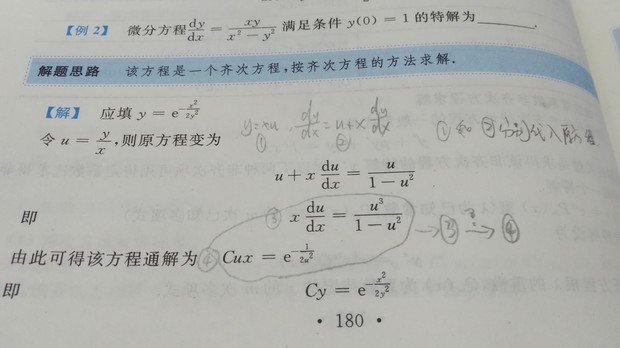 【例 2】 微分方程 dy/dx = xy/(x² − y²) 满足条件 y(0) = 1 的特解为______.
解题思路 该方程是一个齐次方程,按齐次方程的方法求解.
【解】 应填 y = e^(−x²/(2y²))
y=xu ① dy/dx = u+x dy/dx ② ① 和 ② 分别代入
令 u = y/x ,则原方程变为
u + x du/dx = u/(1 − u²)
即 ③ x du/dx = u³/(1 − u²) → ③ →? ④
由此可得该方程通解为 ④ Cux = e^(−1/(2u²))
即 Cy = e^(−x²/(2y²))
· 180 ·